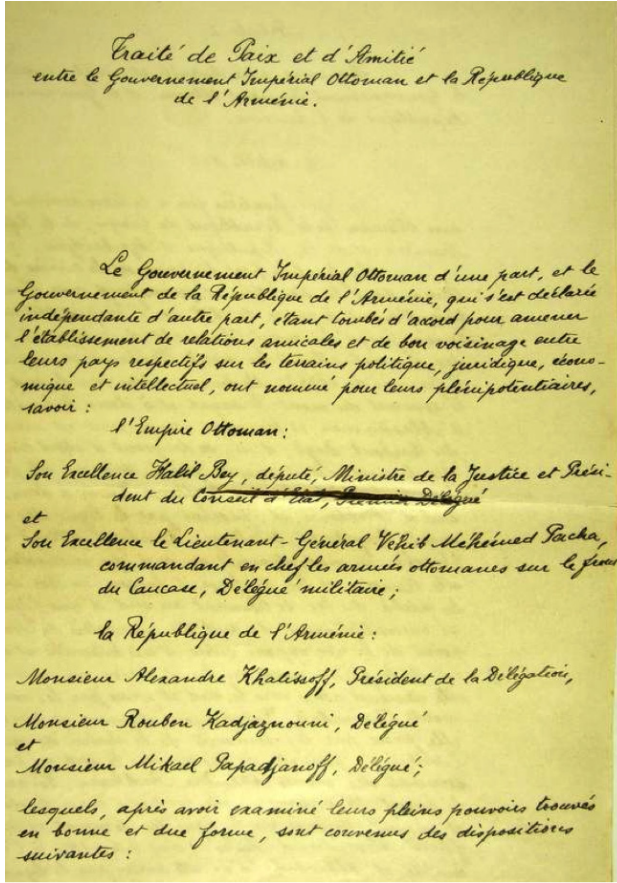 Traité de Paix et d'Amitié
entre le Gouvernement Impérial Ottoman et la République
de l'Arménie.
Le Gouvernement Impérial Ottoman d'une part, et le
Gouvernement de la République de l'Arménie, qui s'est déclarée
indépendante d'autre part, étant tombés d'accord pour amener
l'établissement de relations amicales et de bon voisinage entre
leurs pays respectifs sur les terrains politique, juridique, écono-
mique et intellectuel, ont nommé pour leurs plénipotentiaires,
savoir :
l'Empire Ottoman :
Son Excellence Halil Bey, député, Ministre de la Justice et Prési-
dent du Conseil d'Etat, Premier Délégué
et
Son Excellence le Lieutenant-Général Vehib Méhémed Pacha,
commandant en chef les armées ottomanes sur le front
du Caucase, Délégué militaire ;
la République de l'Arménie :
Monsieur Alexandre Khatissoff, Président de la Délégation,
Monsieur Rouben Kadjaznouni, Délégué
et
Monsieur Mikael Papadjanoff, Délégué ;
lesquels, après avoir examiné leurs pleins pouvoirs trouvés
en bonne et due forme, sont convenus des dispositions
suivantes :